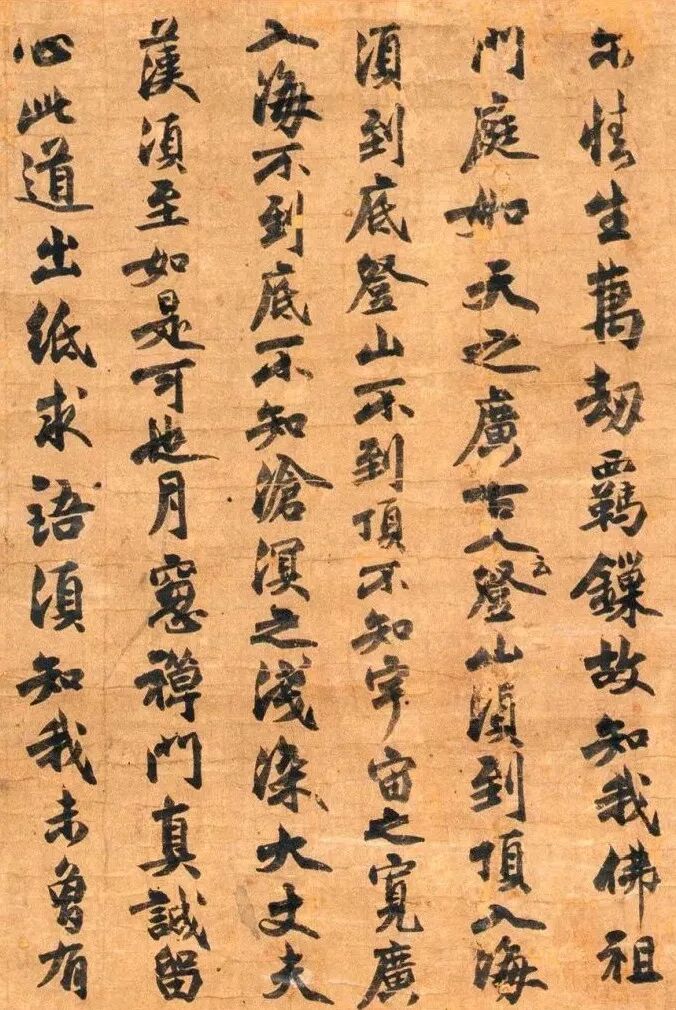 尓情生萬劫羈鏁故知我佛祖
門庭如天之廣古人云登山須到頂入海
須到底登山不到頂不知宇宙之寬廣
入海不到底不知滄溟之淺深大丈夫
漢須至如是可也月窓禪門真誠留
心此道出紙求語須知我未曾有